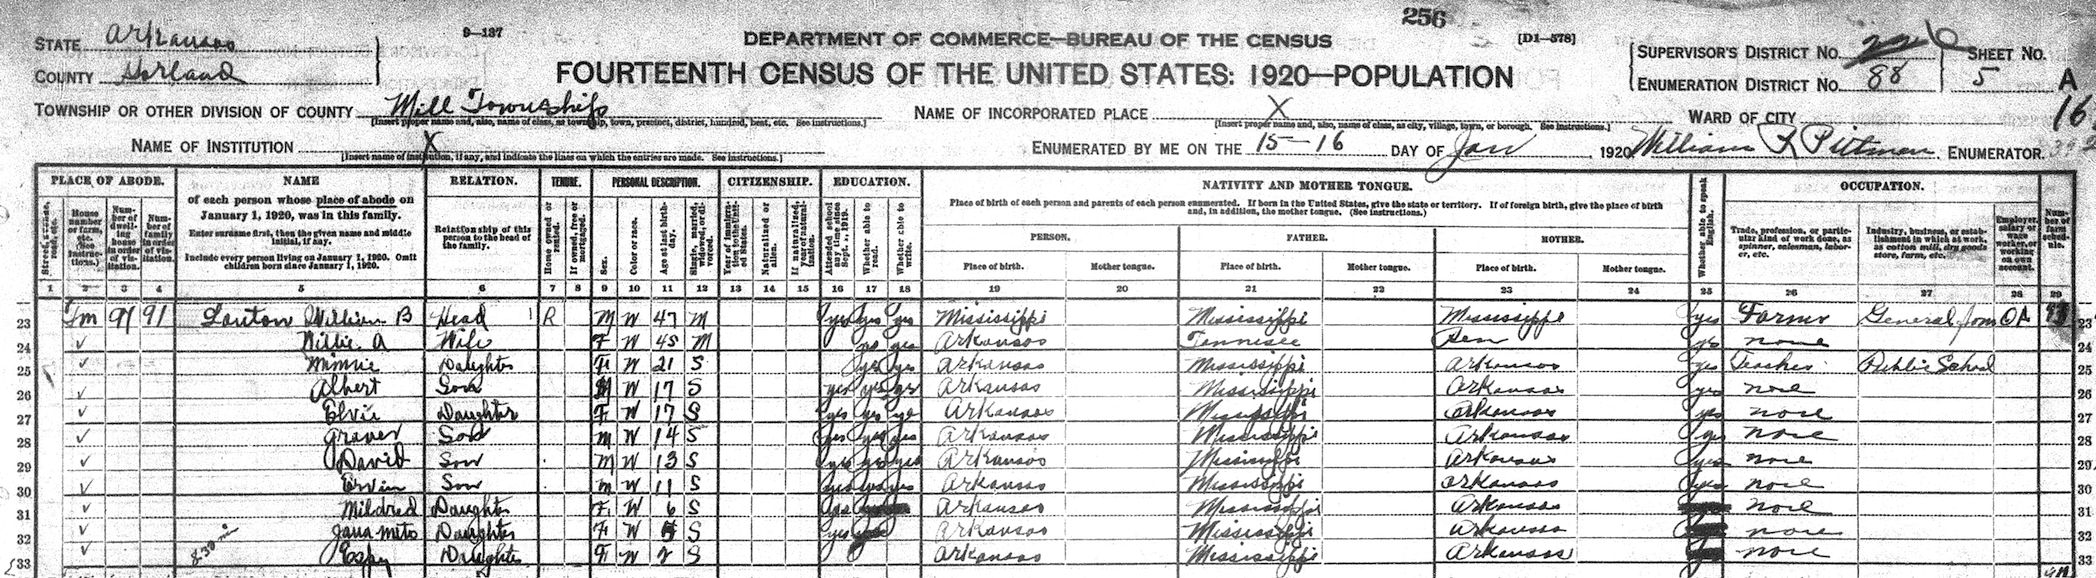 256
STATE Arkansas
9-137
DEPARTMENT OF COMMERCE—BUREAU OF THE CENSUS
[D1-578]
COUNTY
FOURTEENTH CENSUS OF THE UNITED STATES: 1920—POPULATION
SUPERVISOR'S DISTRICT No. 6
SHEET No.
ENUMERATION DISTRICT No. 88
5 A
TOWNSHIP OR OTHER DIVISION OF COUNTY Mill Township
[Insert proper name and, also, name of class, as township, town, precinct, district, hundred, beat, etc. See instructions.]
NAME OF INCORPORATED PLACE X
[Insert proper name and, also, name of class, as city, village, town, or borough. See instructions.]
WARD OF CITY
16
NAME OF INSTITUTION X
[Insert name of institution, if any, and indicate the lines on which the entries are made. See instructions.]
ENUMERATED BY ME ON THE 15-16 DAY OF Jan, 1920 William Pittman, ENUMERATOR.
PLACE OF ABODE. NAME RELATION. TENURE. PERSONAL DESCRIPTION. CITIZENSHIP. EDUCATION. NATIVITY AND MOTHER TONGUE. OCCUPATION.
Street, avenue, road, etc.
House number or farm, etc. (See instructions.)
Number of dwelling house in order of visitation.
Number of family in order of visitation.
of each person whose place of abode on January 1, 1920, was in this family.
Enter surname first, then the given name and middle initial, if any.
Include every person living on January 1, 1920. Omit children born since January 1, 1920.
Relationship of this person to the head of the family.
Home owned or rented.
If owned, free or mortgaged.
Sex.
Color or race.
Age at last birthday.
Single, married, widowed, or divorced.
Year of immigration to the United States.
Naturalized or alien.
If naturalized, year of naturalization.
Attended school any time since Sept. 1, 1919.
Whether able to read.
Whether able to write.
Place of birth of each person and parents of each person enumerated. If born in the United States, give the state or territory. If of foreign birth, give the place of birth and, in addition, the mother tongue. (See instructions.)
PERSON. FATHER. MOTHER.
Place of birth. Mother tongue. Place of birth. Mother tongue. Place of birth. Mother tongue.
Whether able to speak English.
Trade, profession, or particular kind of work done, as spinner, salesman, laborer, etc.
Industry, business, or establishment in which at work, as cotton mill, dry goods store, farm, etc.
Employer, salary or wage worker, or working on own account.
Number of farm schedule.
1 2 3 4 5 6 7 8 9 10 11 12 13 14 15 16 17 18 19 20 21 22 23 24 25 26 27 28 29
23 Fm 91 91 William B Head 1 R M W 47 M yes yes yes Mississippi Mississippi Mississippi yes Farmer General farm OA 23
24 Willie A Wife F W 45 M no yes Arkansas Tennessee yes none 24
25 Minnie Daughter F W 21 S yes yes Arkansas Mississippi Arkansas yes Teacher Public School 25
26 Albert Son M W 17 S yes yes yes Arkansas Mississippi Arkansas yes none 26
27 Elvie Daughter F W 17 S yes yes yes Arkansas Mississippi Arkansas yes none 27
28 Graver Son M W 14 S yes yes yes Arkansas Mississippi Arkansas yes none 28
29 David Son M W 13 S yes yes yes Arkansas Mississippi Arkansas yes none 29
30 Ervin Son M W 11 S yes yes yes Arkansas Mississippi Arkansas yes none 30
31 Mildred Daughter F W 6 S Arkansas Mississippi Arkansas none 31
32 Daughter F W S yes Arkansas Mississippi Arkansas none 32
33 Daughter F W 2 S Arkansas Mississippi Arkansas none 33